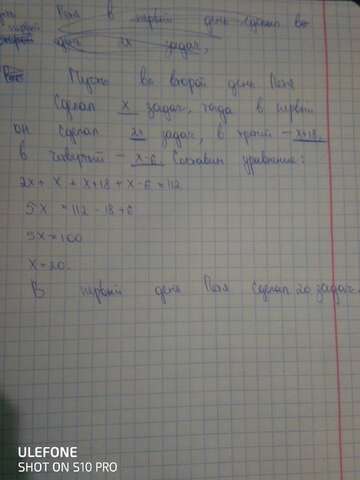 Поля в первый день сделал во
первый 2x задач,
Пусть во второй день Поля
сделал x задач, тогда в первый
он сделал 2x задач, в третий – x+18,
в четвёртый – x-6 Составим уравнение:
2x + x + x+18 + x-6 = 112
5x = 112 - 18 + 6
5x = 100
x = 20.
В первый день Поля сделал 20 задач.
ULEFONE
SHOT ON S10 PRO